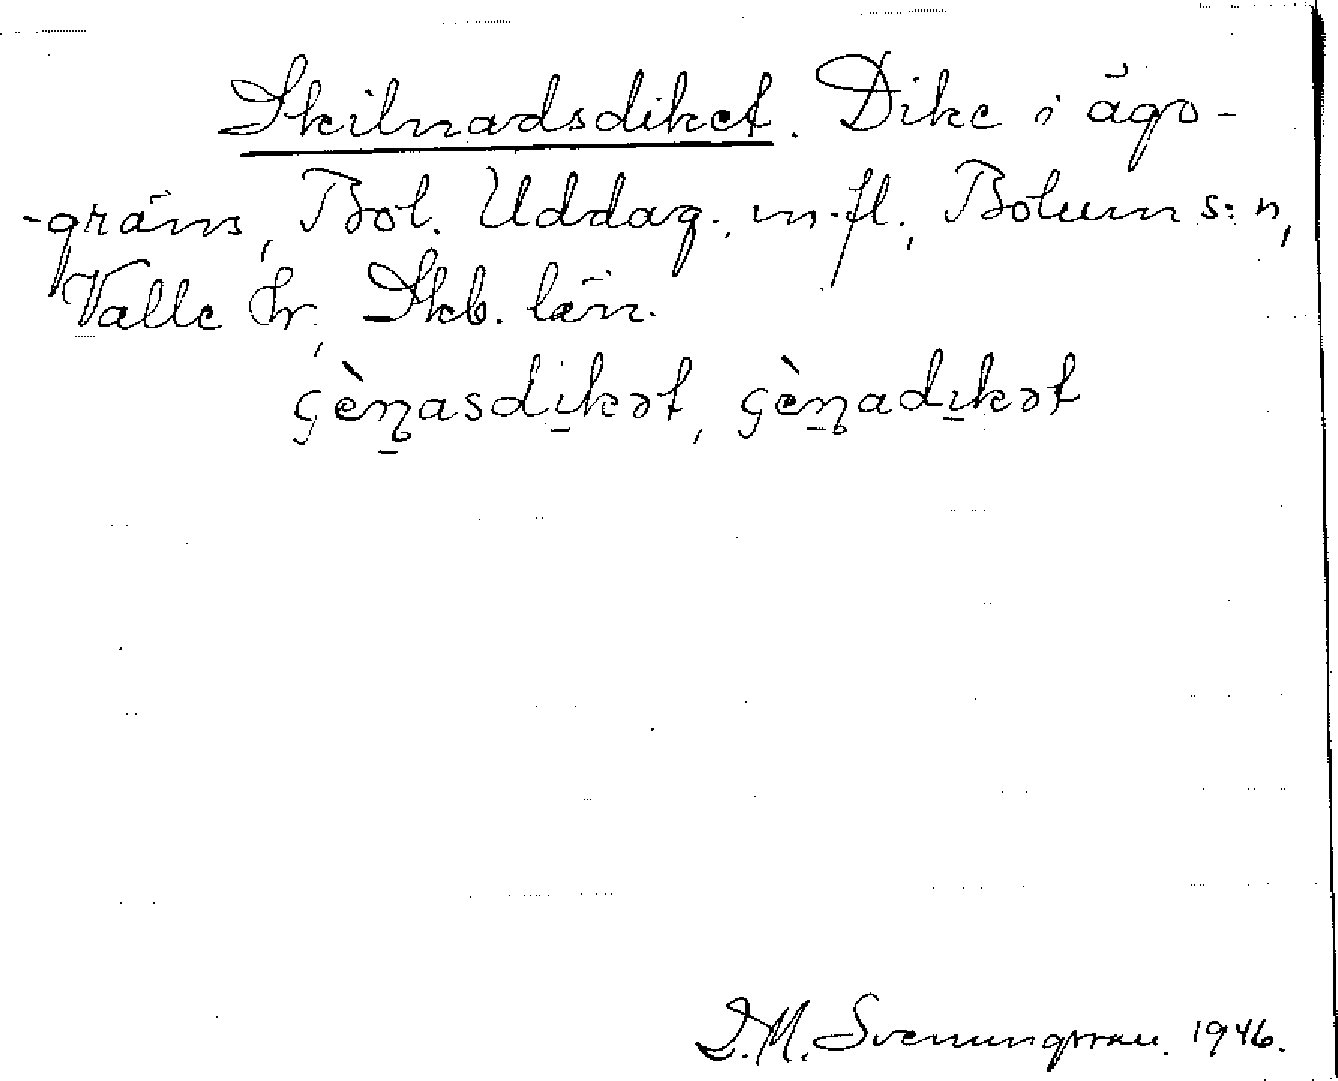 Skilnadsdiket. Dike i ägo-
-gräns, Bol. Uddag. m.fl., Bolum s:n,
Valle hr, Skb. län.
çèn̠asdi̠kət, çèn̠adi̠kət
D.M. Svenungsson. 1946.